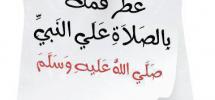 عطر فمك
بِالصَلَاةِ عَلَي النَبيِّ
صَلَّي اللهُ عَليهِ وَسَلَّمَ